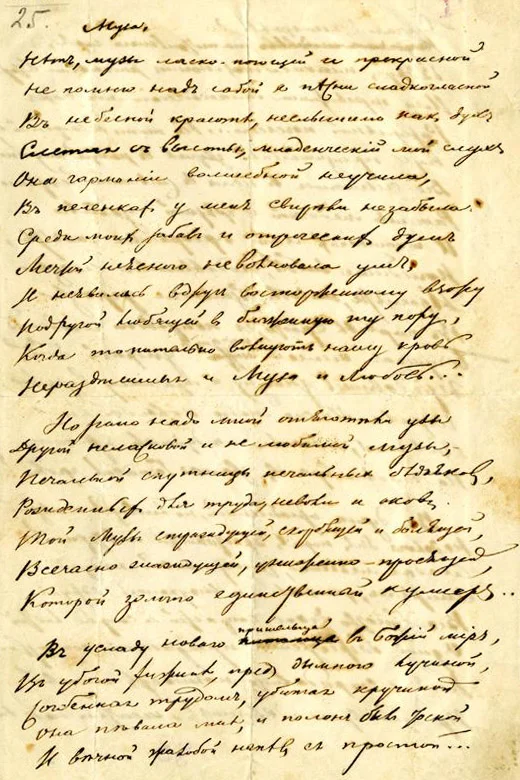 25.
Муза.
Нѣтъ, музы ласково-поющей и прекрасной
Не помню надъ собой я пѣсни сладкогласной
Въ небесной красотѣ, неслышимо какъ духъ
Слетая съ высоты, младенческій мой слухъ
Она гармоніи волшебной не учила,
Въ пеленкахъ у меня свирѣли не забыла.
Среди моихъ забавъ и отроческихъ думъ
Мечтой неясною не волновала умъ,
И не явилась вдругъ восторженному взору
Подругой любящей въ блаженную ту пору,
Когда томительно волнуютъ нашу кровь
Нераздѣлимыя и Муза и Любовь...
Но рано надо мной отяготѣли узы
Другой неласковой и не любимой музы,
Печальной спутницы печальныхъ бѣдняковъ,
Рожденныхъ для труда, неволи и оковъ.
Той Музы страждущей, скорбящей и болящей,
Всечасно жаждущей, униженно-просящей,
Которой золото единственный кумиръ...
пришельца
Въ усладу новаго въ Божій міръ,
Въ убогой хижинѣ, предъ дымною лучиной,
Согбенная трудомъ, убитая кручиной
Она пѣвала мнѣ, и полонъ былъ тоской
И вѣчной жалобой напѣвъ ея простой...